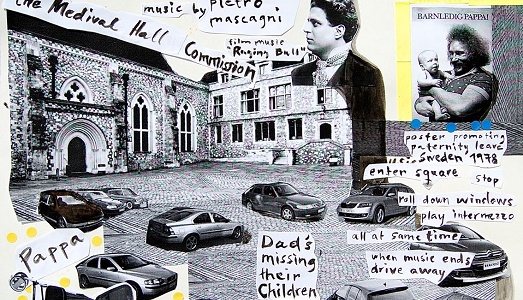 the Medival Hall
music by Pietro
mascagni
film music
"Raging Bull"
Commission
BARNLEDIG PAPPA!
poster promoting
paternity leave
Sweden 1978
enter square
stop
roll down windows
play intermezzo
all at same time
when music ends
drive away
Pappa
Dad's
missing
their
Children